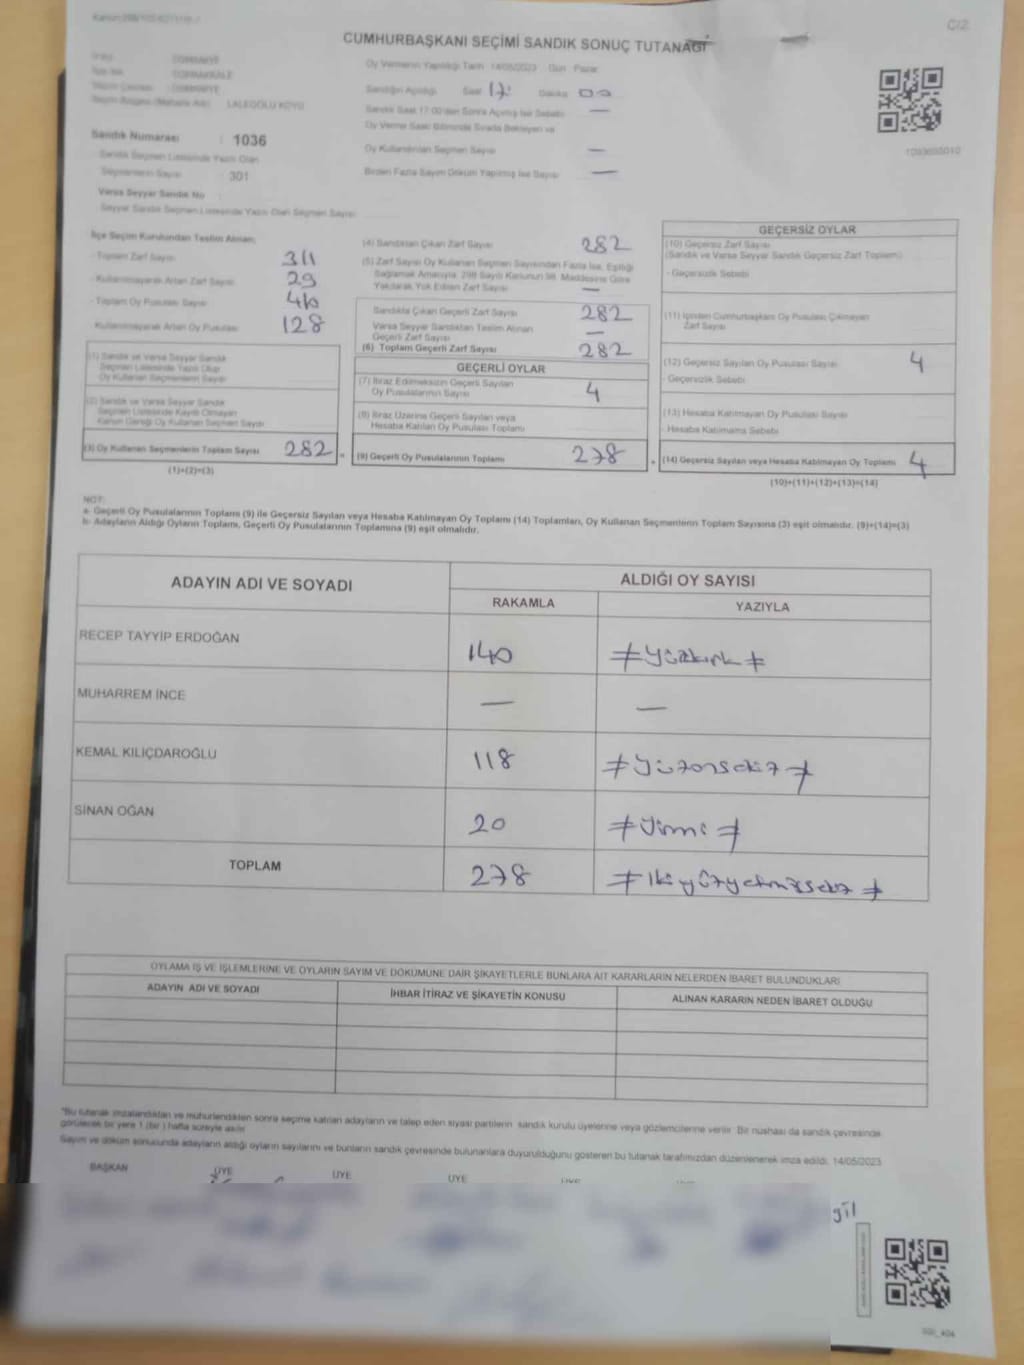 Ç/2
CUMHURBAŞKANI SEÇİMİ SANDIK SONUÇ TUTANAĞI
Oy Vermenin Yapıldığı Tarih 14/05/2023 Gün Pazar
Sandığın Açıldığı Saat 17 Dakika 00
OSMANİYE
TOPRAKKALE
OSMANİYE
LALEGÖLÜ KÖYÜ
Sandık Saat 17:00'den Sonra Açılmış İse Sebebi —
Oy Verme Saati Bitiminde Sırada Bekleyen ve
Oy Kullandırılan Seçmen Sayısı —
Birden Fazla Sayım Döküm Yapılmış İse Sayısı —
Sandık Numarası : 1036
Sandık Seçmen Listesinde Yazılı Olan
Seçmenlerin Sayısı : 301
Varsa Seyyar Sandık No
Seyyar Sandık Seçmen Listesinde Yazılı Olan Seçmen Sayısı
İlçe Seçim Kurulundan Teslim Alınan;
- Toplam Zarf Sayısı 311
- Kullanılmayarak Artan Zarf Sayısı 29
- Toplam Oy Pusulası Sayısı 410
- Kullanılmayarak Artan Oy Pusulası 128
(1) Sandık ve Varsa Seyyar Sandık
Seçmen Listesinde Yazılı Olup
Oy Kullanan Seçmenlerin Sayısı
(2) Sandık ve Varsa Seyyar Sandık
Seçmen Listesinde Kayıtlı Olmayan
Kanun Gereği Oy Kullanan Seçmen Sayısı
(3) Oy Kullanan Seçmenlerin Toplam Sayısı 282
(1)+(2)=(3)
(4) Sandıktan Çıkan Zarf Sayısı 282
(5) Zarf Sayısı Oy Kullanan Seçmen Sayısından Fazla İse, Eşitliği
Sağlamak Amacıyla, 298 Sayılı Kanunun 98. Maddesine Göre
Yakılarak Yok Edilen Zarf Sayısı —
Sandıkta Çıkan Geçerli Zarf Sayısı 282
Varsa Seyyar Sandıktan Teslim Alınan
Geçerli Zarf Sayısı —
(6) Toplam Geçerli Zarf Sayısı 282
GEÇERLİ OYLAR
(7) İtiraz Edilmeksizin Geçerli Sayılan
Oy Pusulalarının Sayısı 4
(8) İtiraz Üzerine Geçerli Sayılan veya
Hesaba Katılan Oy Pusulası Toplamı
(9) Geçerli Oy Pusulalarının Toplamı 278
GEÇERSİZ OYLAR
(10) Geçersiz Zarf Sayısı
(Sandık ve Varsa Seyyar Sandık Geçersiz Zarf Toplamı)
- Geçersizlik Sebebi
(11) İçinden Cumhurbaşkanı Oy Pusulası Çıkmayan
Zarf Sayısı
(12) Geçersiz Sayılan Oy Pusulası Sayısı 4
- Geçersizlik Sebebi
(13) Hesaba Katılmayan Oy Pusulası Sayısı
- Hesaba Katılmama Sebebi
(14) Geçersiz Sayılan veya Hesaba Katılmayan Oy Toplamı 4
(10)+(11)+(12)+(13)=(14)
NOT:
a- Geçerli Oy Pusulalarının Toplamı (9) ile Geçersiz Sayılan veya Hesaba Katılmayan Oy Toplamı (14) Toplamları, Oy Kullanan Seçmenlerin Toplam Sayısına (3) eşit olmalıdır. (9)+(14)=(3)
b- Adayların Aldığı Oyların Toplamı, Geçerli Oy Pusulalarının Toplamına (9) eşit olmalıdır.
ADAYIN ADI VE SOYADI ALDIĞI OY SAYISI
RAKAMLA YAZIYLA
RECEP TAYYİP ERDOĞAN 140 #yüzkırk#
MUHARREM İNCE — —
KEMAL KILIÇDAROĞLU 118 #yüzonsekiz#
SİNAN OĞAN 20 #yirmi#
TOPLAM 278 #ikiyüzyetmişsekiz#
OYLAMA İŞ VE İŞLEMLERİNE VE OYLARIN SAYIM VE DÖKÜMÜNE DAİR ŞİKAYETLERLE BUNLARA AİT KARARLARIN NELERDEN İBARET BULUNDUKLARI
ADAYIN ADI VE SOYADI İHBAR İTİRAZ VE ŞİKAYETİN KONUSU ALINAN KARARIN NEDEN İBARET OLDUĞU
*Bu tutanak imzalandıktan ve mühürlendikten sonra seçime katılan adayların ve talep eden siyasi partilerin sandık kurulu üyelerine veya gözlemcilerine verilir. Bir nüshası da sandık çevresinde
görülecek bir yere 1 (bir) hafta süreyle asılır.
Sayım ve döküm sonucunda adayların aldığı oyların sayılarını ve bunların sandık çevresinde bulunanlara duyurulduğunu gösteren bu tutanak tarafımızdan düzenlenerek imza edildi. 14/05/2023
BAŞKAN ÜYE ÜYE ÜYE ÜYE
gil